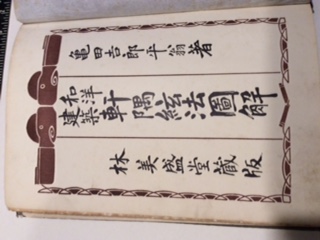 亀田吉郎平翁著
和洋
建築
軒隅絃法圖解
林美盛堂蔵版